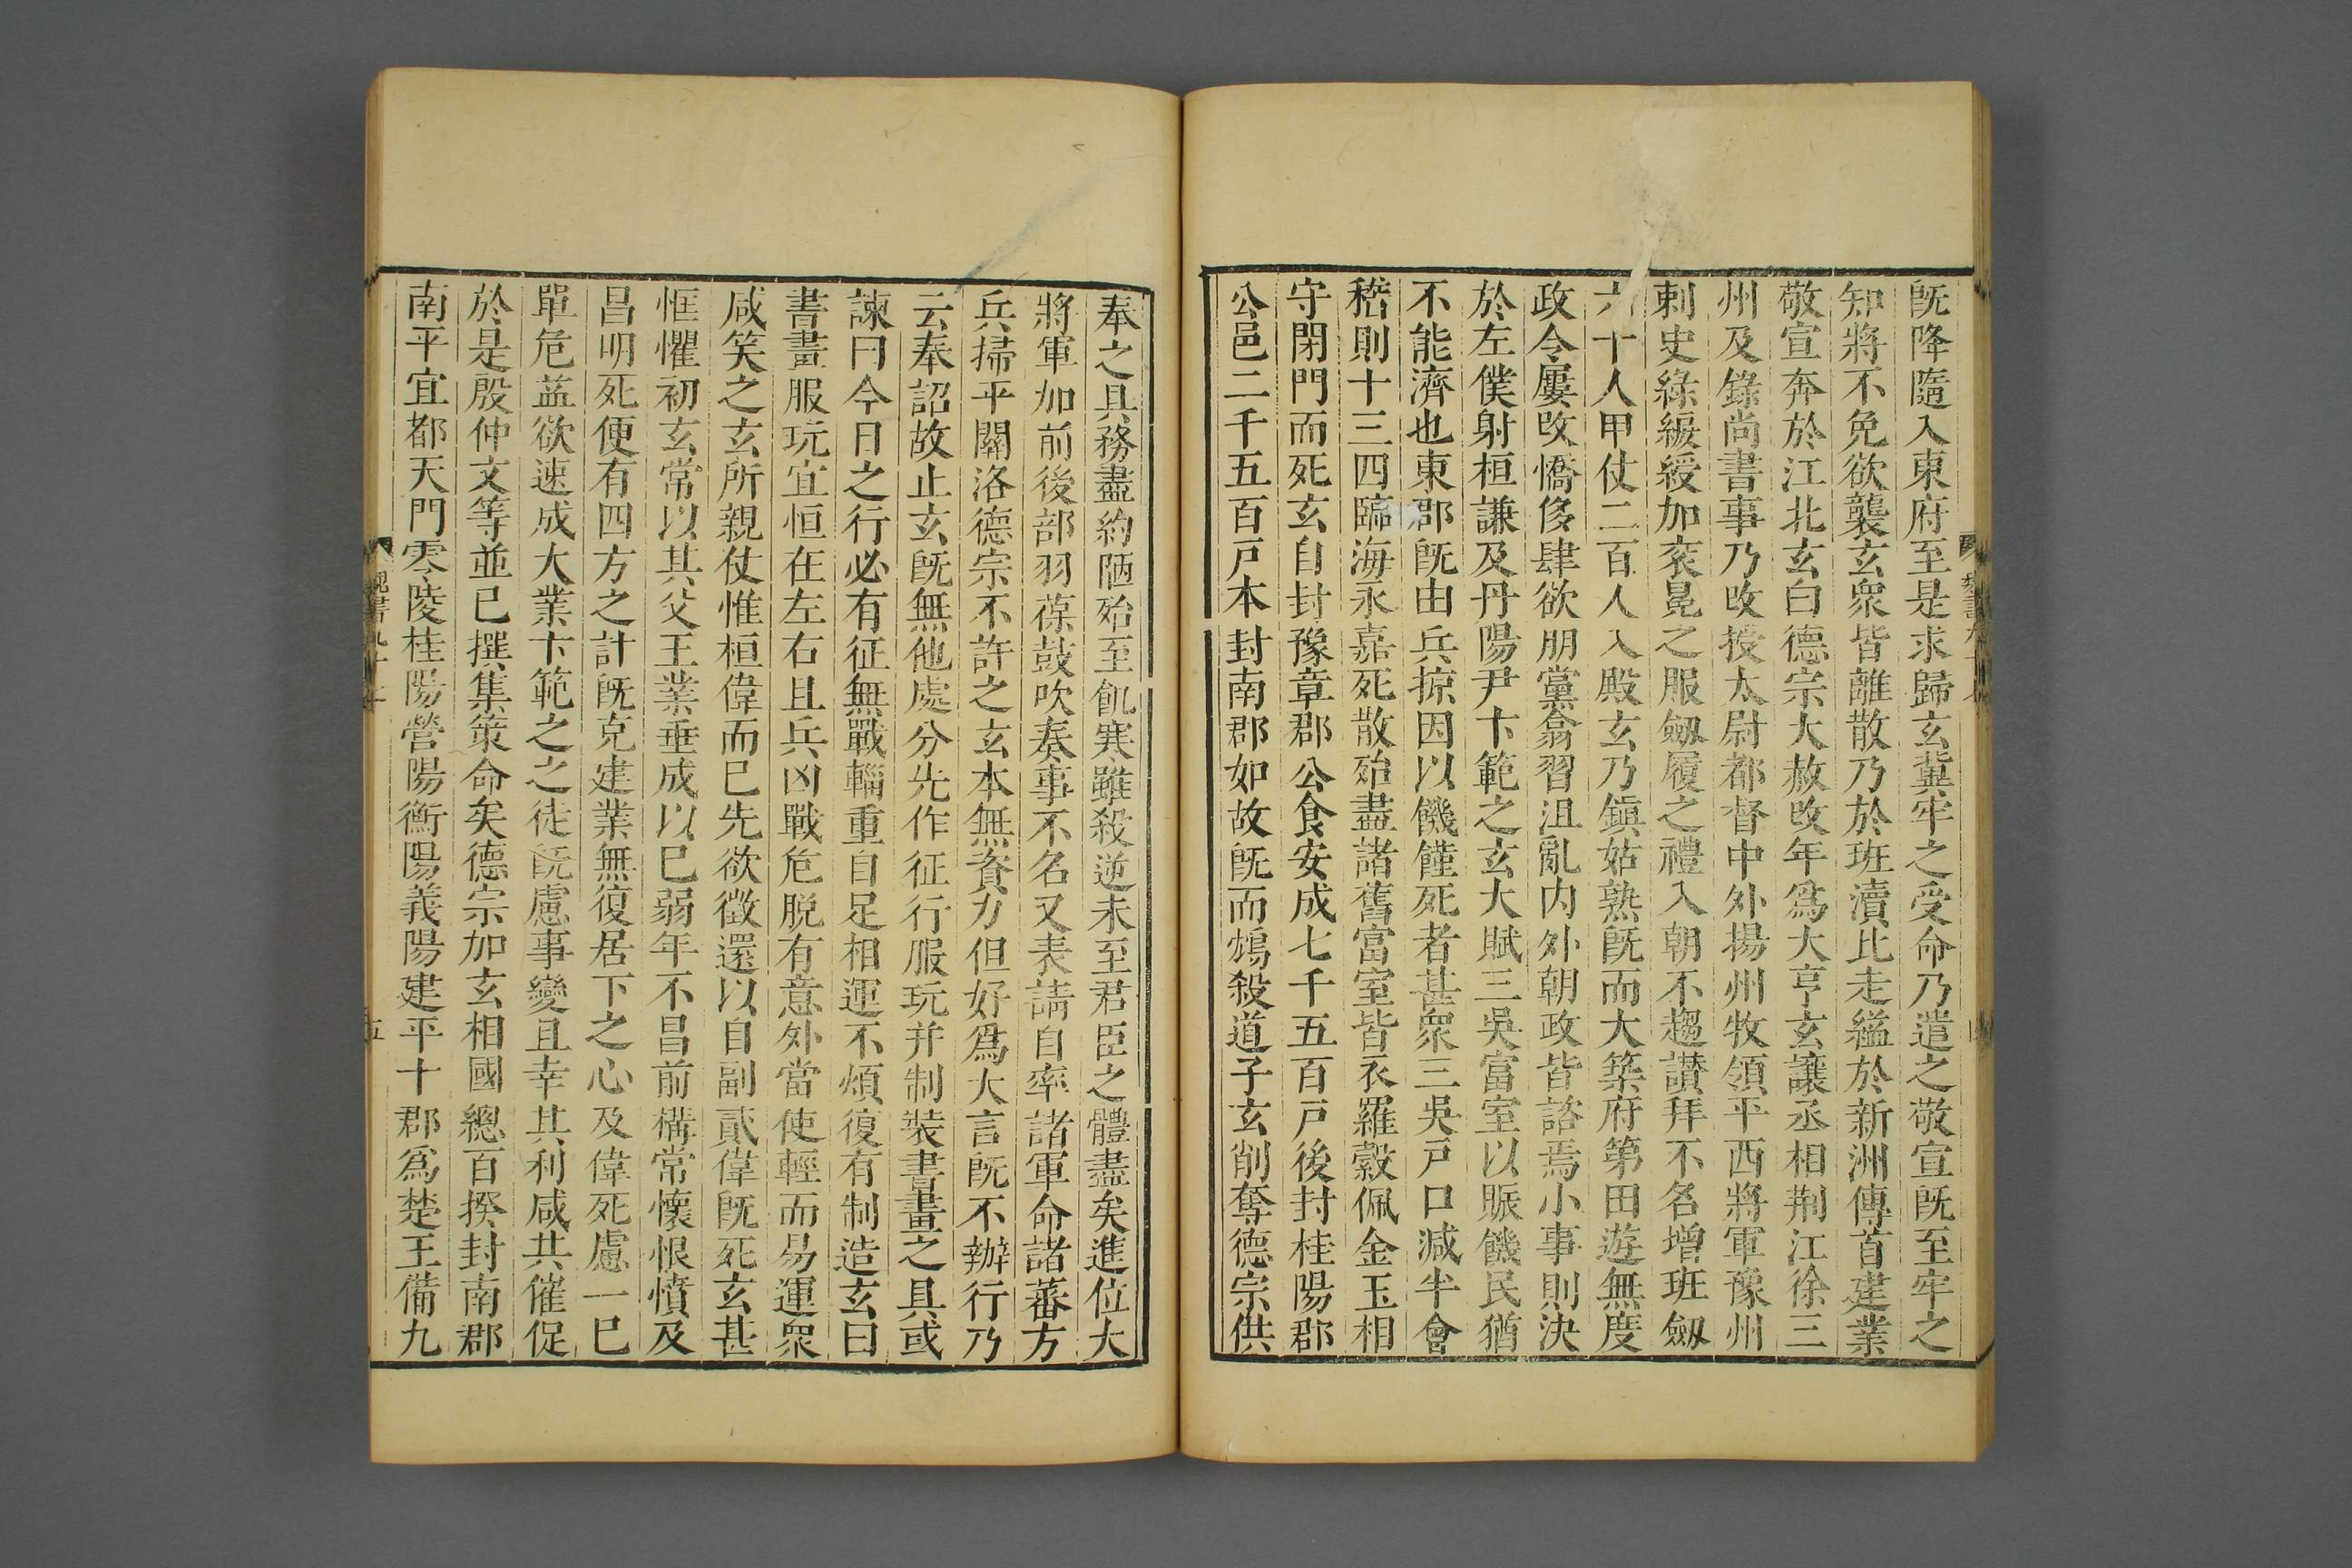 既降隨入東府至是求歸玄冀牢之受命乃遣之敬宣既至牢之
知將不免欲襲玄衆皆離散乃於班瀆北走縊於新洲傳首建業
敬宣奔於江北玄白德宗大赦改年爲大亨玄讓丞相荆江徐三
州及錄尚書事乃改授太尉都督中外揚州牧領平西將軍豫州
刺史綠綟綬加衮冕之服劔履之禮入朝不趨讃拜不名增班劔
六十人甲仗二百人入殿玄乃鎭姑熟既而大築府第田遊無度
政令屢改憍侈肆欲朋黨翕習沮亂内外朝政皆諮焉小事則決
於左僕射桓謙及丹陽尹卞範之玄大賦三吳富室以賑饑民猶
不能濟也東郡既由兵掠因以饑饉死者甚衆三吳戸口減半會
稽則十三四臨海永嘉死散殆盡諸舊富室皆衣羅縠佩金玉相
守閉門而死玄自封豫章郡公食安成七千五百戸後封桂陽郡
公邑二千五百戸本封南郡如故既而鴆殺道子玄削奪德宗供
奉之具務盡約陋殆至飢寒雖殺逆未至君臣之體盡矣進位大
將軍加前後部羽葆鼓吹奏事不名又表請自率諸軍命諸蕃方
兵掃平關洛德宗不許之玄本無資力但好爲大言既不辦行乃
云奉詔故止玄既無他處分先作征行服玩并制裝書畫之具或
諫曰今日之行必有征無戰輜重自足相運不煩復有制造玄曰
書畫服玩宜恒在左右且兵凶戰危脱有意外當使輕而易運衆
咸笑之玄所親仗惟桓偉而已先欲徵還以自副貳偉既死玄甚
恇懼初玄常以其父王業垂成以已弱年不昌前構常懷恨憤及
昌明死便有四方之計既克建業無復居下之心及偉死慮一已
單危益欲速成大業卞範之之徒既慮事變且幸其利咸共催促
於是殷仲文等並已撰集策命矣德宗加玄相國總百揆封南郡
南平宜都天門零陵桂陽營陽衡陽義陽建平十郡爲楚王備九
五